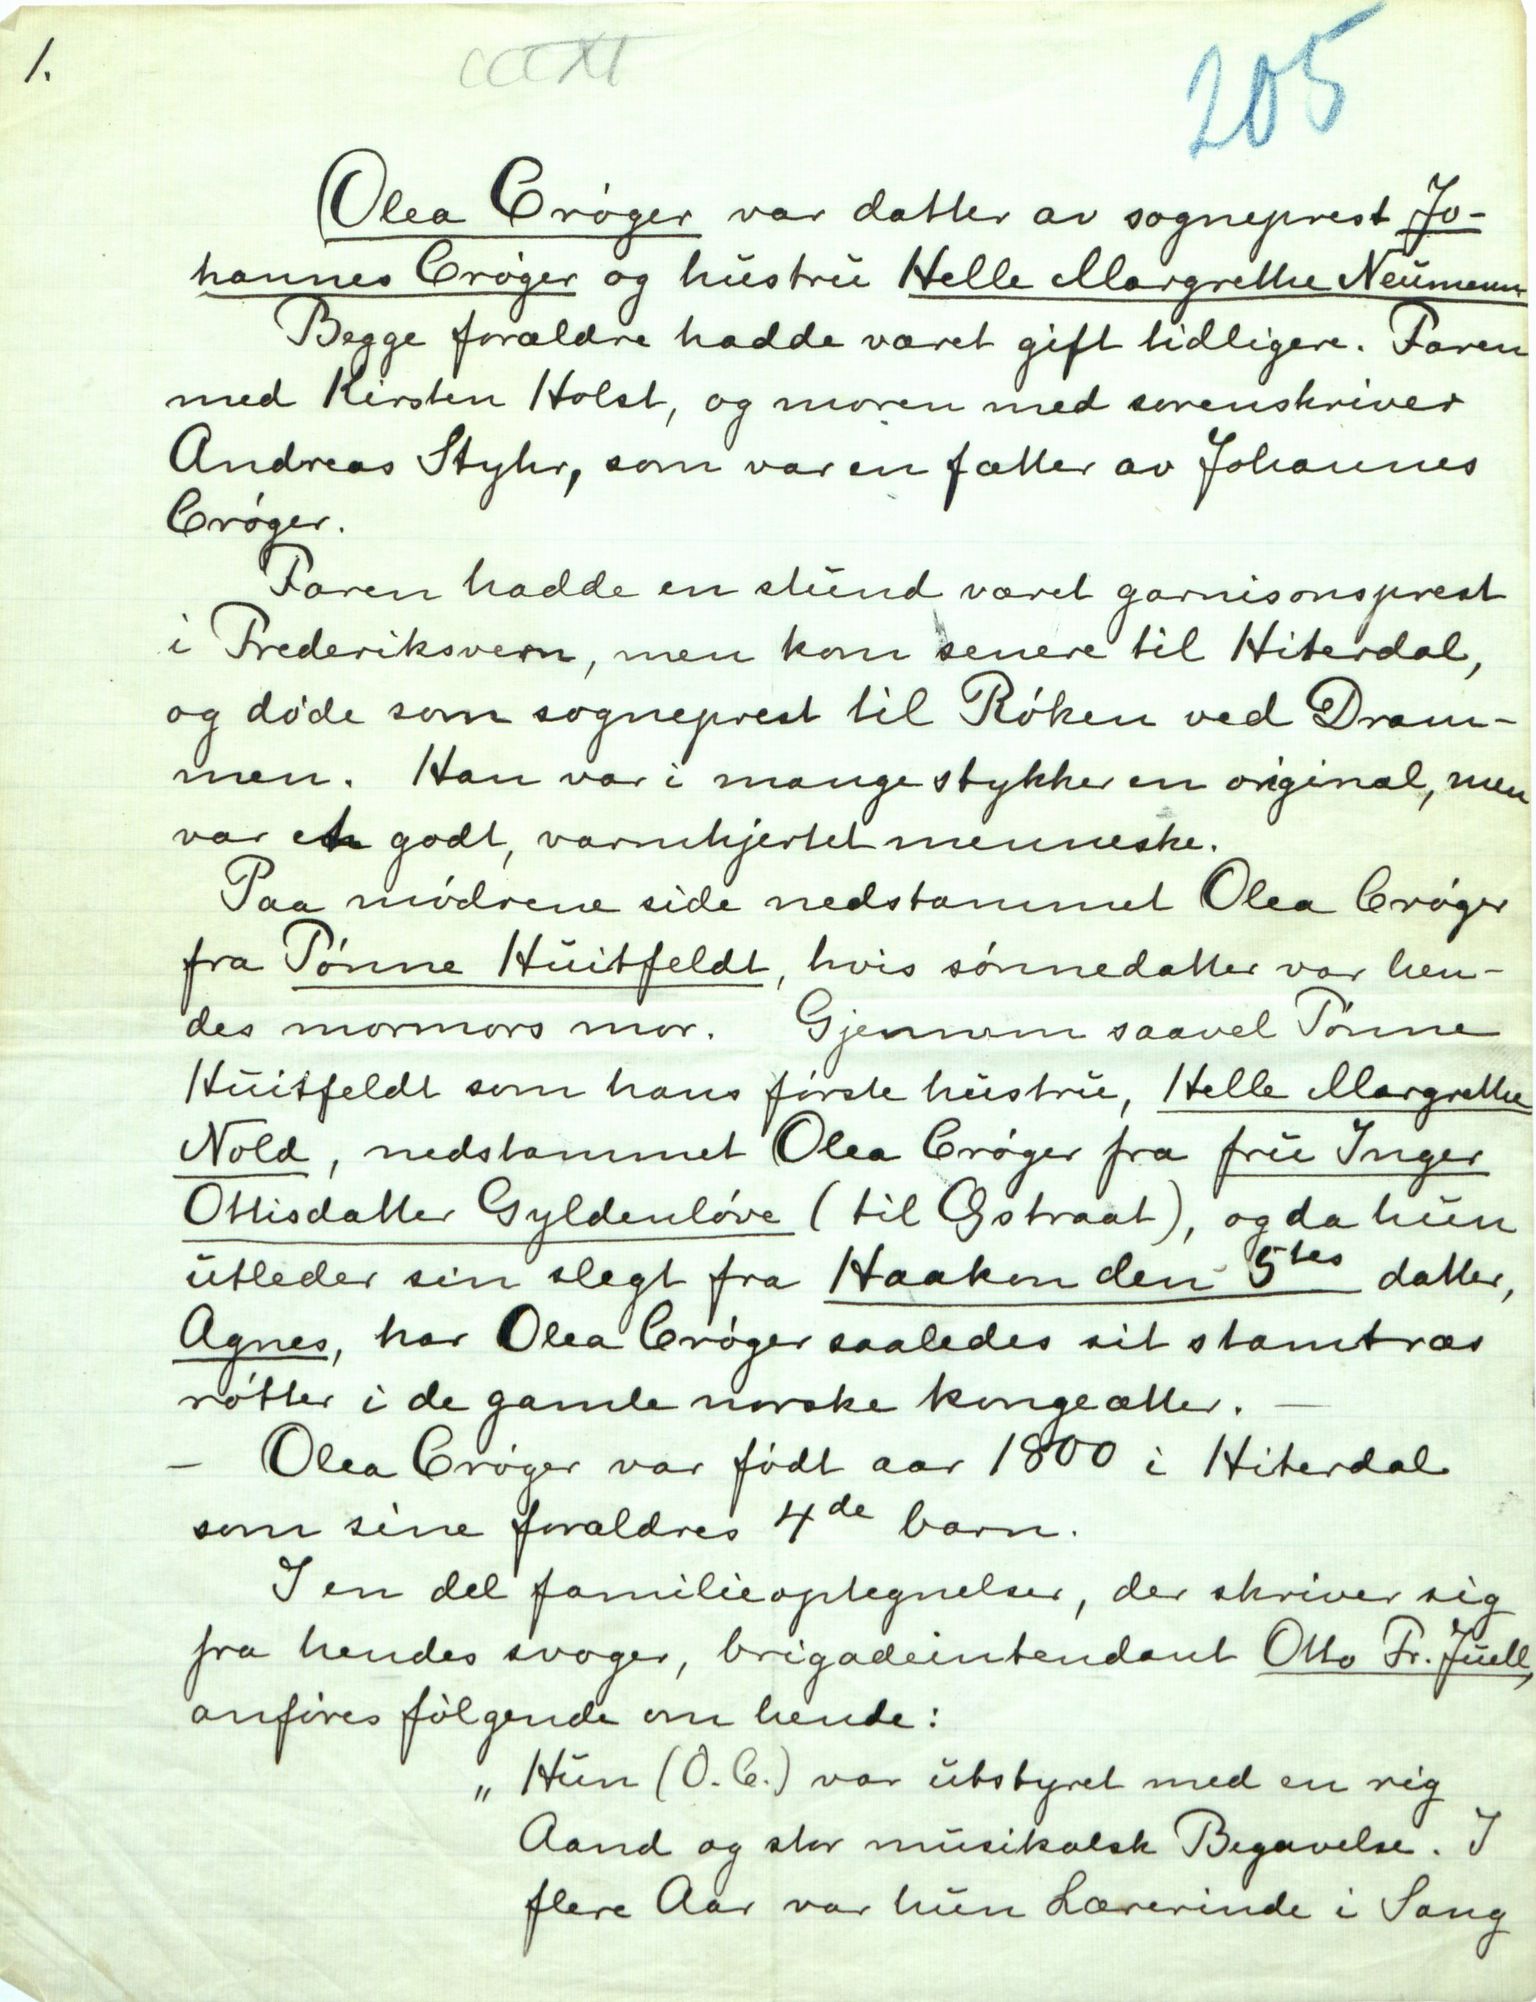 1.
205
Olea Crøger var datter av sogneprest Jo-
hannes Crøger og hustru Helle Margrethe Neumann
Begge forældre hadde været gift tidligere. Faren
med Kirsten Holst, og moren med sorenskriver
Andreas Styhr, som var en fætter av Johannes
Crøger.
Faren hadde en stund været garnisonsprest
i Frederiksvern, men kom senere til Hiterdal,
og døde som sogneprest til Røken ved Dram-
men. Han var i mange stykker en original, men
var et godt, varmhjertet menneske.
Paa mødrene side nedstammet Olea Crøger
fra Tønne Huitfeldt, hvis sønnedatter var hen-
des mormors mor. Gjennom saavel Tønne
Huitfeldt som hans første hustru, Helle Margrethe
Nold, nedstammet Olea Crøger fra fru Inger
Ottisdatter Gyldenløve (til Østraat), og da hun
utleder sin slegt fra Haakon den 5tes datter,
Agnes, har Olea Crøger saaledes sit stamtræs
røtter i de gamle norske kongeætter. —
— Olea Crøger var født aar 1800 i Hiterdal
som sine forældres 4de barn.
I en del familieoptegnelser, der skriver sig
fra hendes svoger, brigadeintendant Otto Fr. Juell,
anføres følgende om hende:
„Hun (O.C.) var utstyret med en rig
Aand og stor musikalsk Begavelse. I
flere Aar var hun Lærerinde i Sang